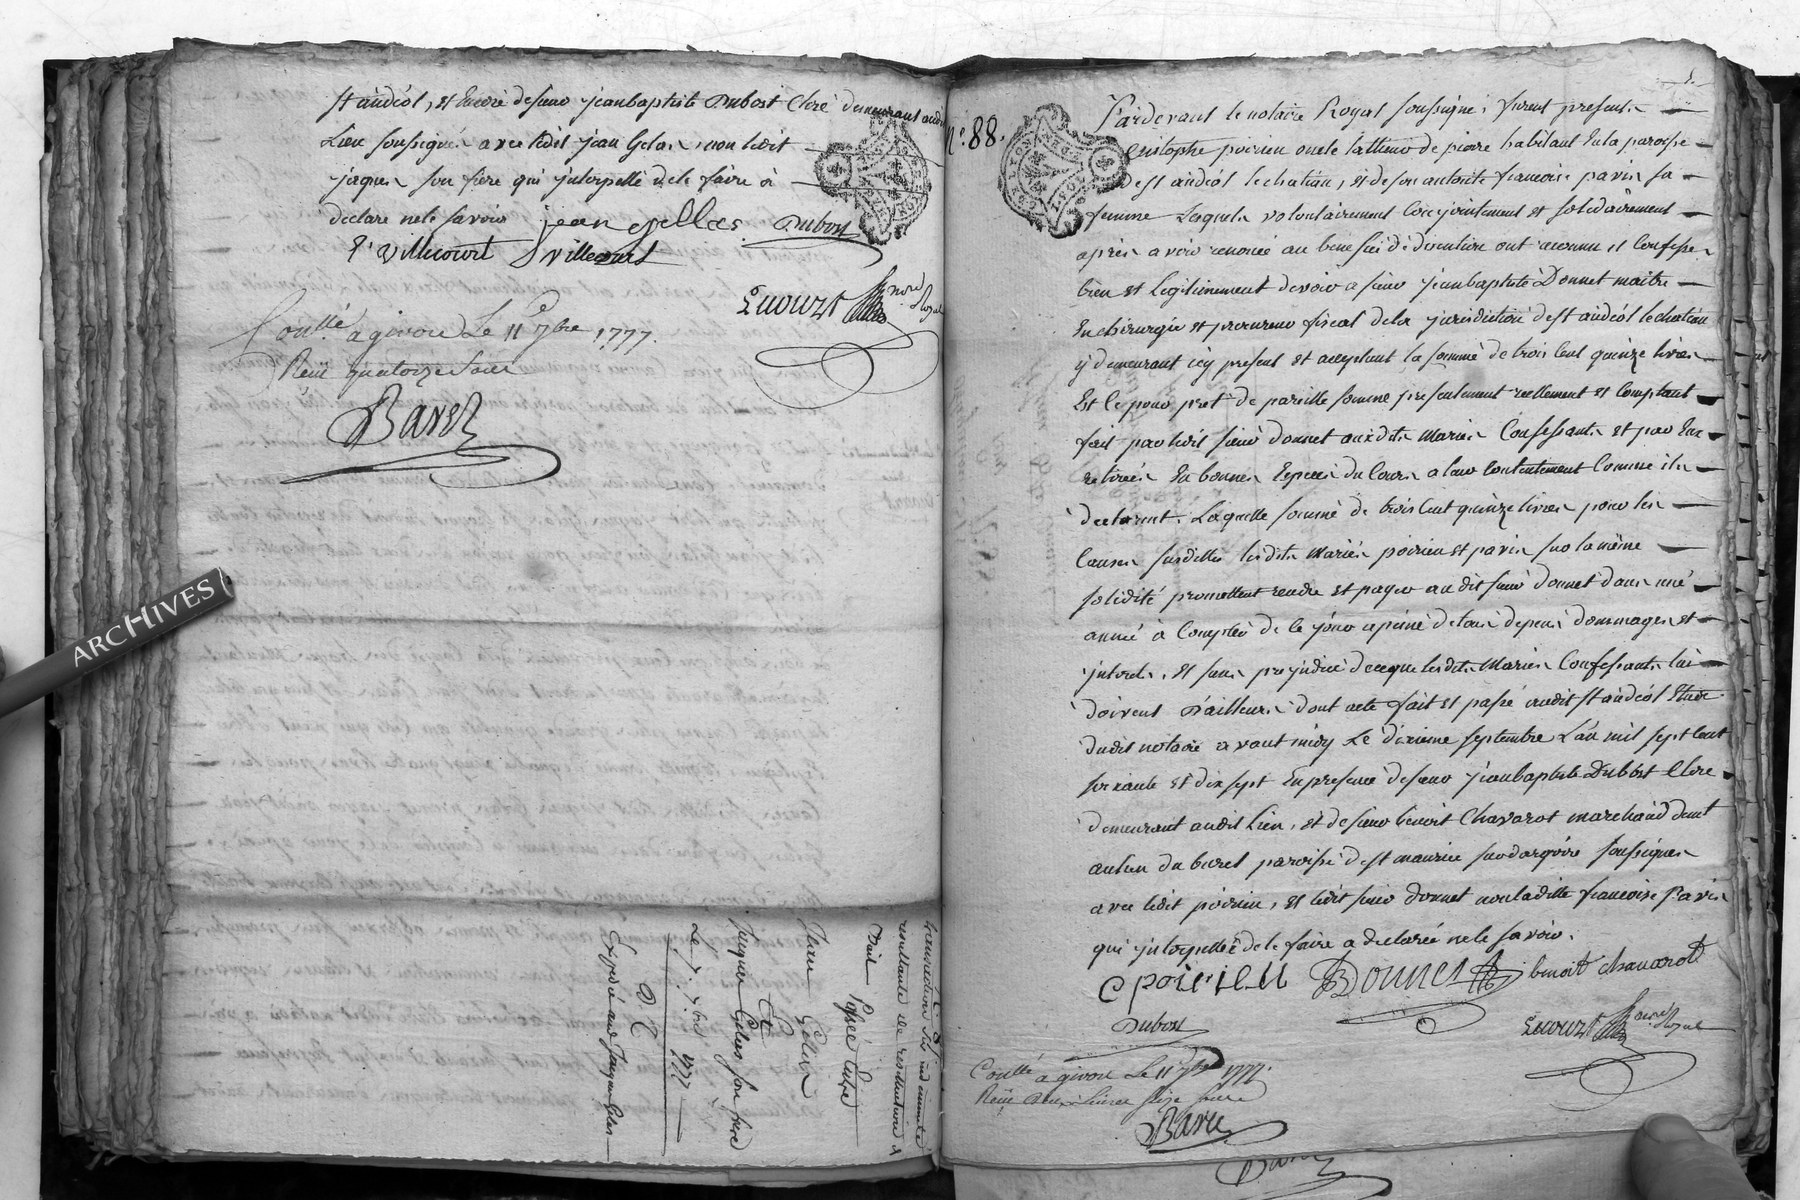 st andéol, et Encore de sieur jean baptiste Dubost Clerc demeurant audit
Lieu soussignés avec ledit jean Gelas, non ledit
jaques son frere qui jnterpellé de le faire à
declaré ne le savoir jean gellas Dubost
Villecourt Villecourt
Lhours nore Royal
Conllé a givors Le 11e 7bre 1777.
Reçu quatorze sous
Baret
ARCHIVES
Jean Gelas
Et
Jaques Gelas son frere
Le 7. 7bre 1777
Expedié aud Jaques Gelas
No. 88.
Pardevant le notaire Royal soussigné; furent presents
poirieu oncle de pierre habitant En la paroisse
de st andéol le chateau, et de son autorité francoise pavin sa
femme Lesquels volontairement Conjointement et solidairement
après avoir renoncé au benefice de division ont reconnu et Confessé
bien et legitimement devoir a sieur jean baptiste Donnet maitre
En chirurgie et procureur fiscal de la jurisdiction de st andéol le chateau
y demeurant icy present et acceptant la somme de trois Cent quinze livres
Et ce pour pret de pareille somme presentement reellement et Comptant
fait par ledit sieur donnet auxdits Mariés Confessants et par Eux
retirées En bonnes Especes du Cours a leur Contentement Comme ils
declarent. Laquelle somme de trois Cent quinze livres pour les
Causes susdittes lesdits Mariés poirieu et pavin sur la même
solidité promettent rendre et payer audit sieur donnet dans une
année à Compter de ce jour a peine de tous depens dommages et
jnterets, Et sans prejudice de ce que lesdits Mariés Confessants lui
doivent D'ailleurs dont acte fait et passé audit st andéol Etude
dudit notaire avant midy Le dixieme septembre L'an mil sept Cent
soixante et dix sept En presence de sieur jean baptiste Dubost Clerc
demeurant audit Lieu, et de sieur benoit Chavarot marchand demt
au lieu du buret paroisse de st maurice sur dargoire soussignés
avec ledit poirieu, et ledit sieur donnet non laditte francoise Pavin
qui jnterpellée de le faire a declarée ne le savoir.
C poirieu Donnet benoit chavarot
Dubost
Lhours nore Royal
Conllé a givors Le 11e 7bre 1777.
Reçu Deux Livres seize sous
Baret